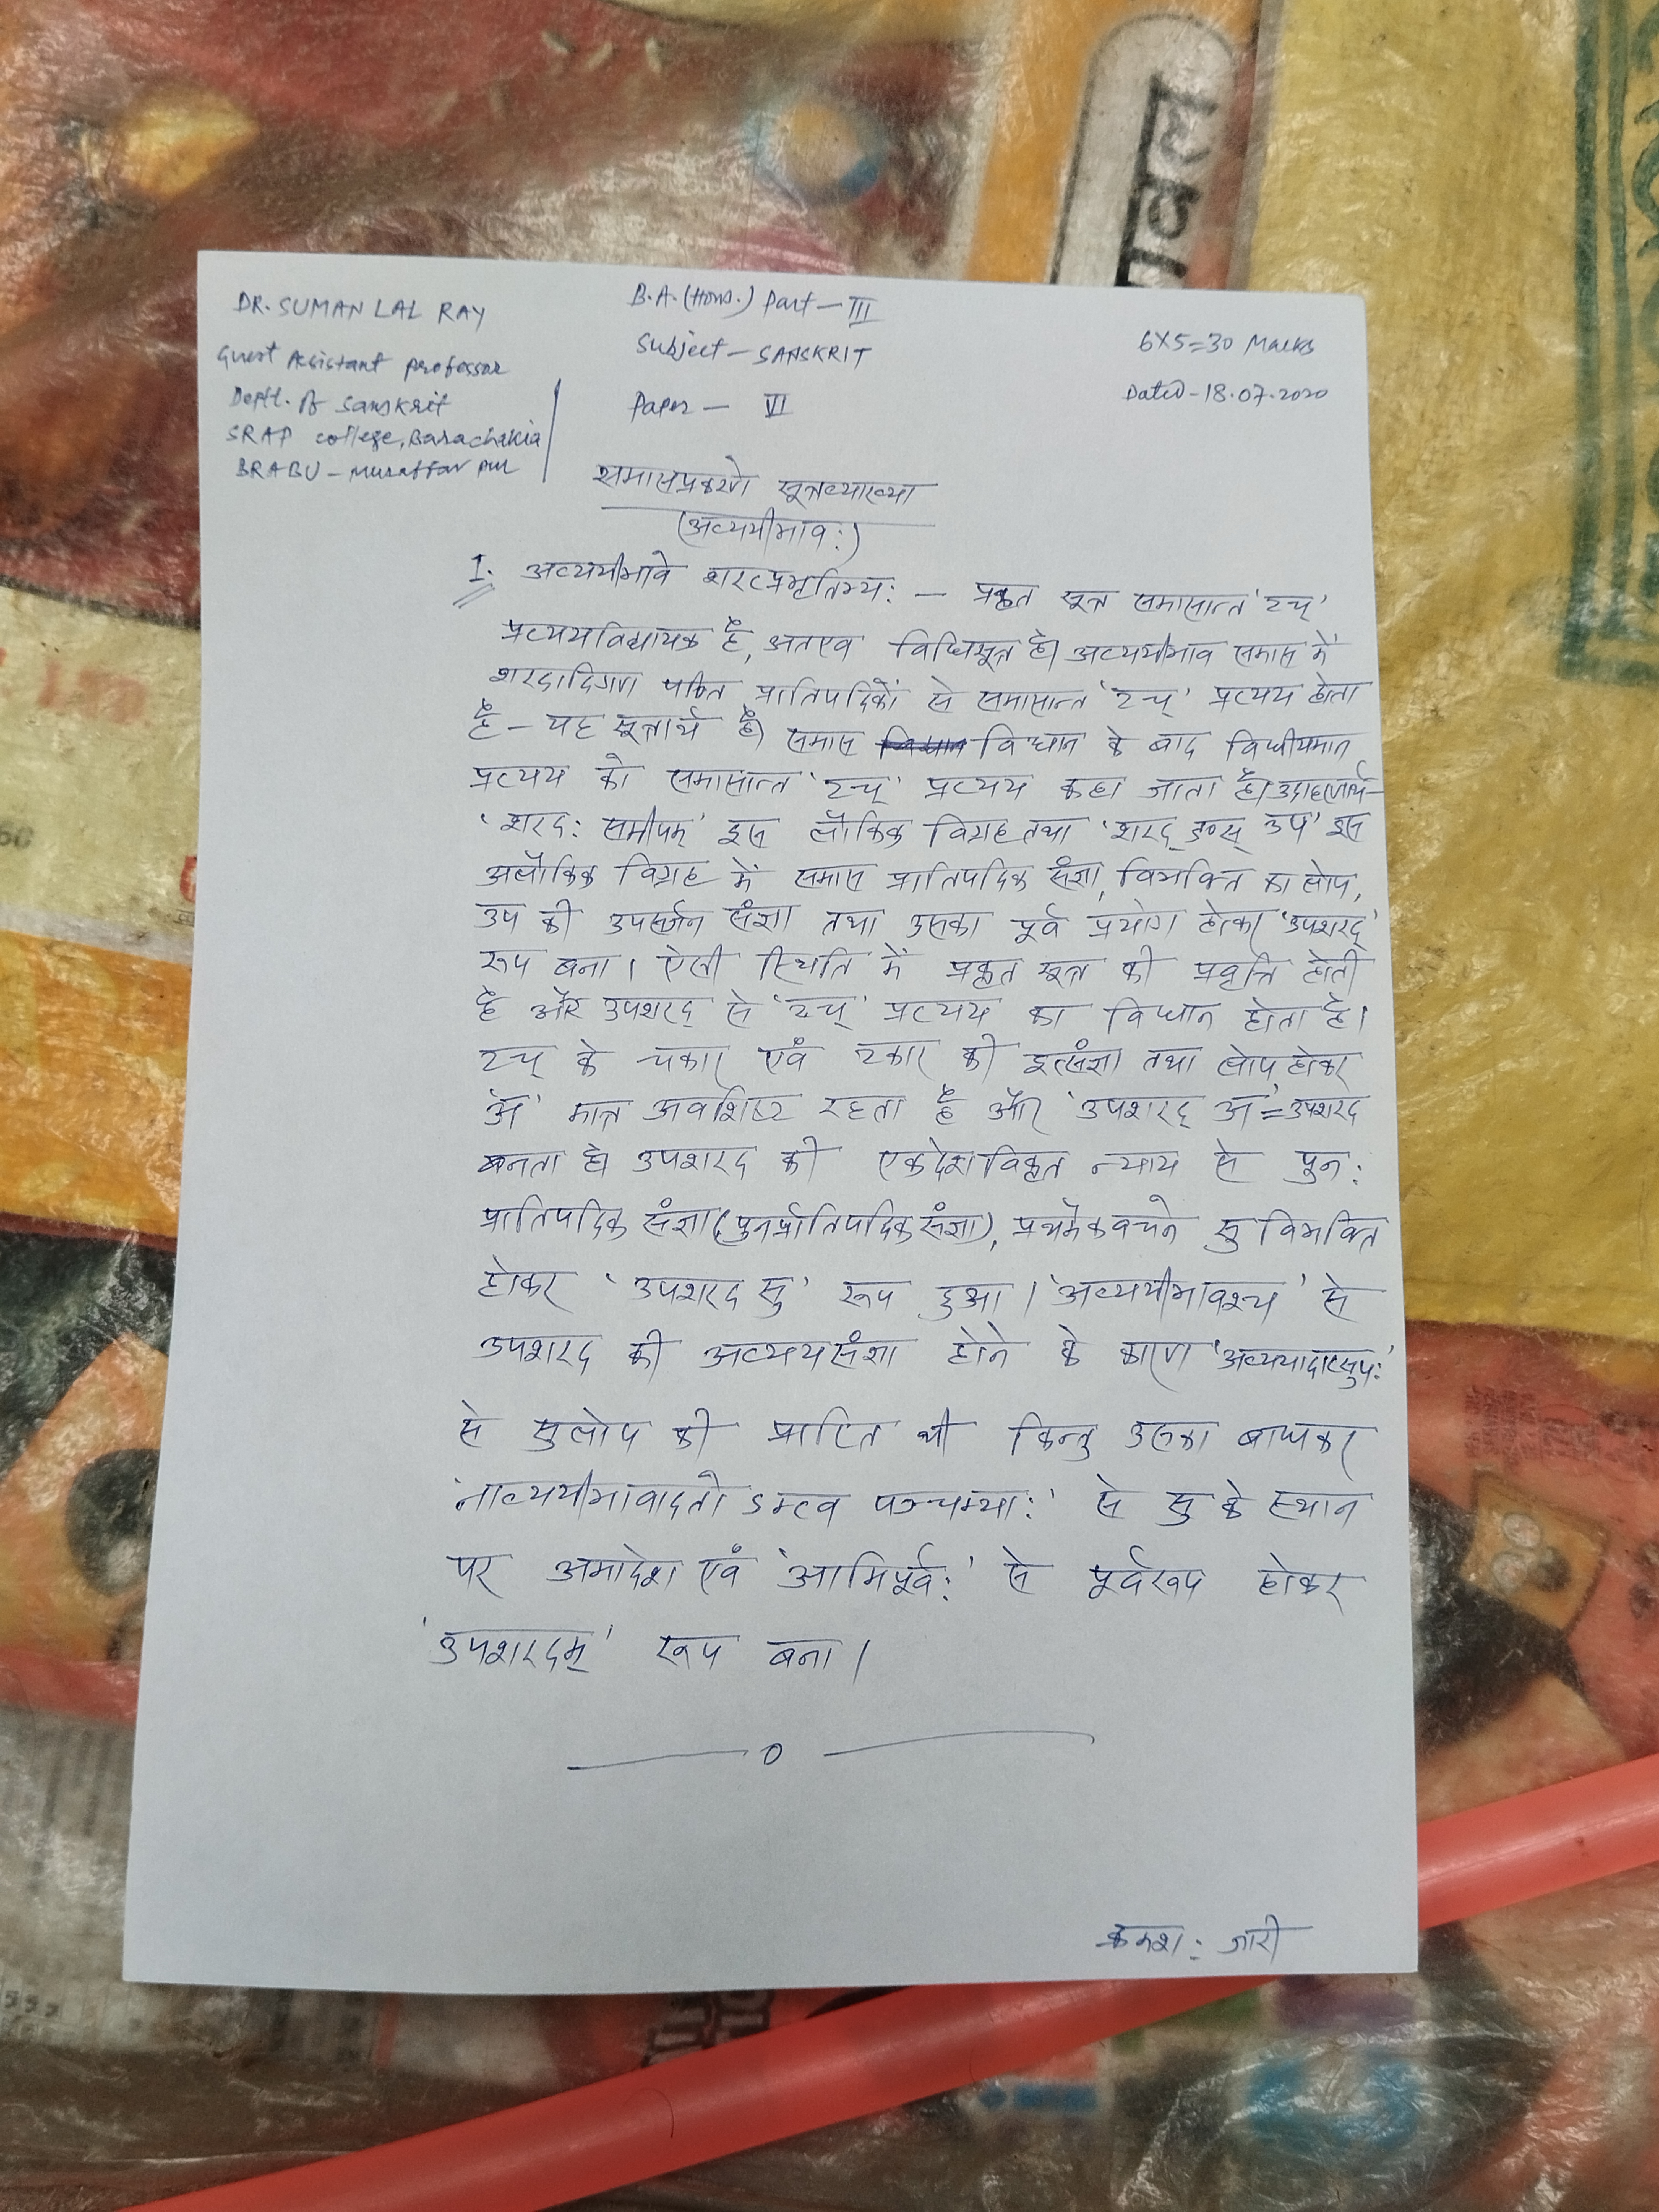 DR. SUMAN LAL RAY
Guest Assistant professor
Deptt. of Sanskrit
SRAP college, Barachakia
BRABU - Muzaffarpur
B.A. (Hons.) Part - III
Subject - SANSKRIT
Paper - VI
6X5=30 Marks
Dated - 18.07.2020
समासप्रकरणे सूत्रव्याख्या
(अव्ययीभाव:)
I. अव्ययीभावे शरत्प्रभृतिभ्य: — प्रकृत सूत्र समासान्त 'टच्'
प्रत्ययविधायक है, अतएव विधिसूत्र है। अव्ययीभाव समास में
शरदादिगण पठित प्रातिपदिकों से समासान्त 'टच्' प्रत्यय होता
है – यह सूत्रार्थ है। समास विधान के बाद विधीयमान
प्रत्यय को समासान्त 'टच्' प्रत्यय कहा जाता है। उदाहरणार्थ–
'शरद: समीपम्' इस लौकिक विग्रह तथा 'शरद् ङस् उप' इस
अलौकिक विग्रह में समास प्रातिपदिक संज्ञा, विभक्ति का लोप,
उप की उपसर्जन संज्ञा तथा उसका पूर्व प्रयोग होकर 'उपशरद्'
रूप बना। ऐसी स्थिति में प्रकृत सूत्र की प्रवृत्ति होती
है और उपशरद् से 'टच्' प्रत्यय का विधान होता है।
टच् के चकार एवं टकार की इत्संज्ञा तथा लोप होकर
'अ' मात्र अवशिष्ट रहता है और 'उपशरद् अ' = उपशरद
बनता है। उपशरद की एकदेशविकृत न्याय से पुन:
प्रातिपदिक संज्ञा (पुनर्प्रातिपदिकसंज्ञा), प्रथमैकवचने सु विभक्ति
होकर 'उपशरद सु' रूप हुआ। 'अव्ययीभावश्च' से
उपशरद की अव्ययसंज्ञा होने के कारण 'अव्ययादाप्सुप:'
से सुलोप की प्राप्ति थी किन्तु उसका बाधकर
'नाव्ययीभावादतोऽम्त्व पञ्चम्या:' से सु के स्थान
पर अमादेश एवं 'अामिपूर्व:' से पूर्वरूप होकर
'उपशरदम्' रूप बना।
— 0 —
क्रमश: जारी